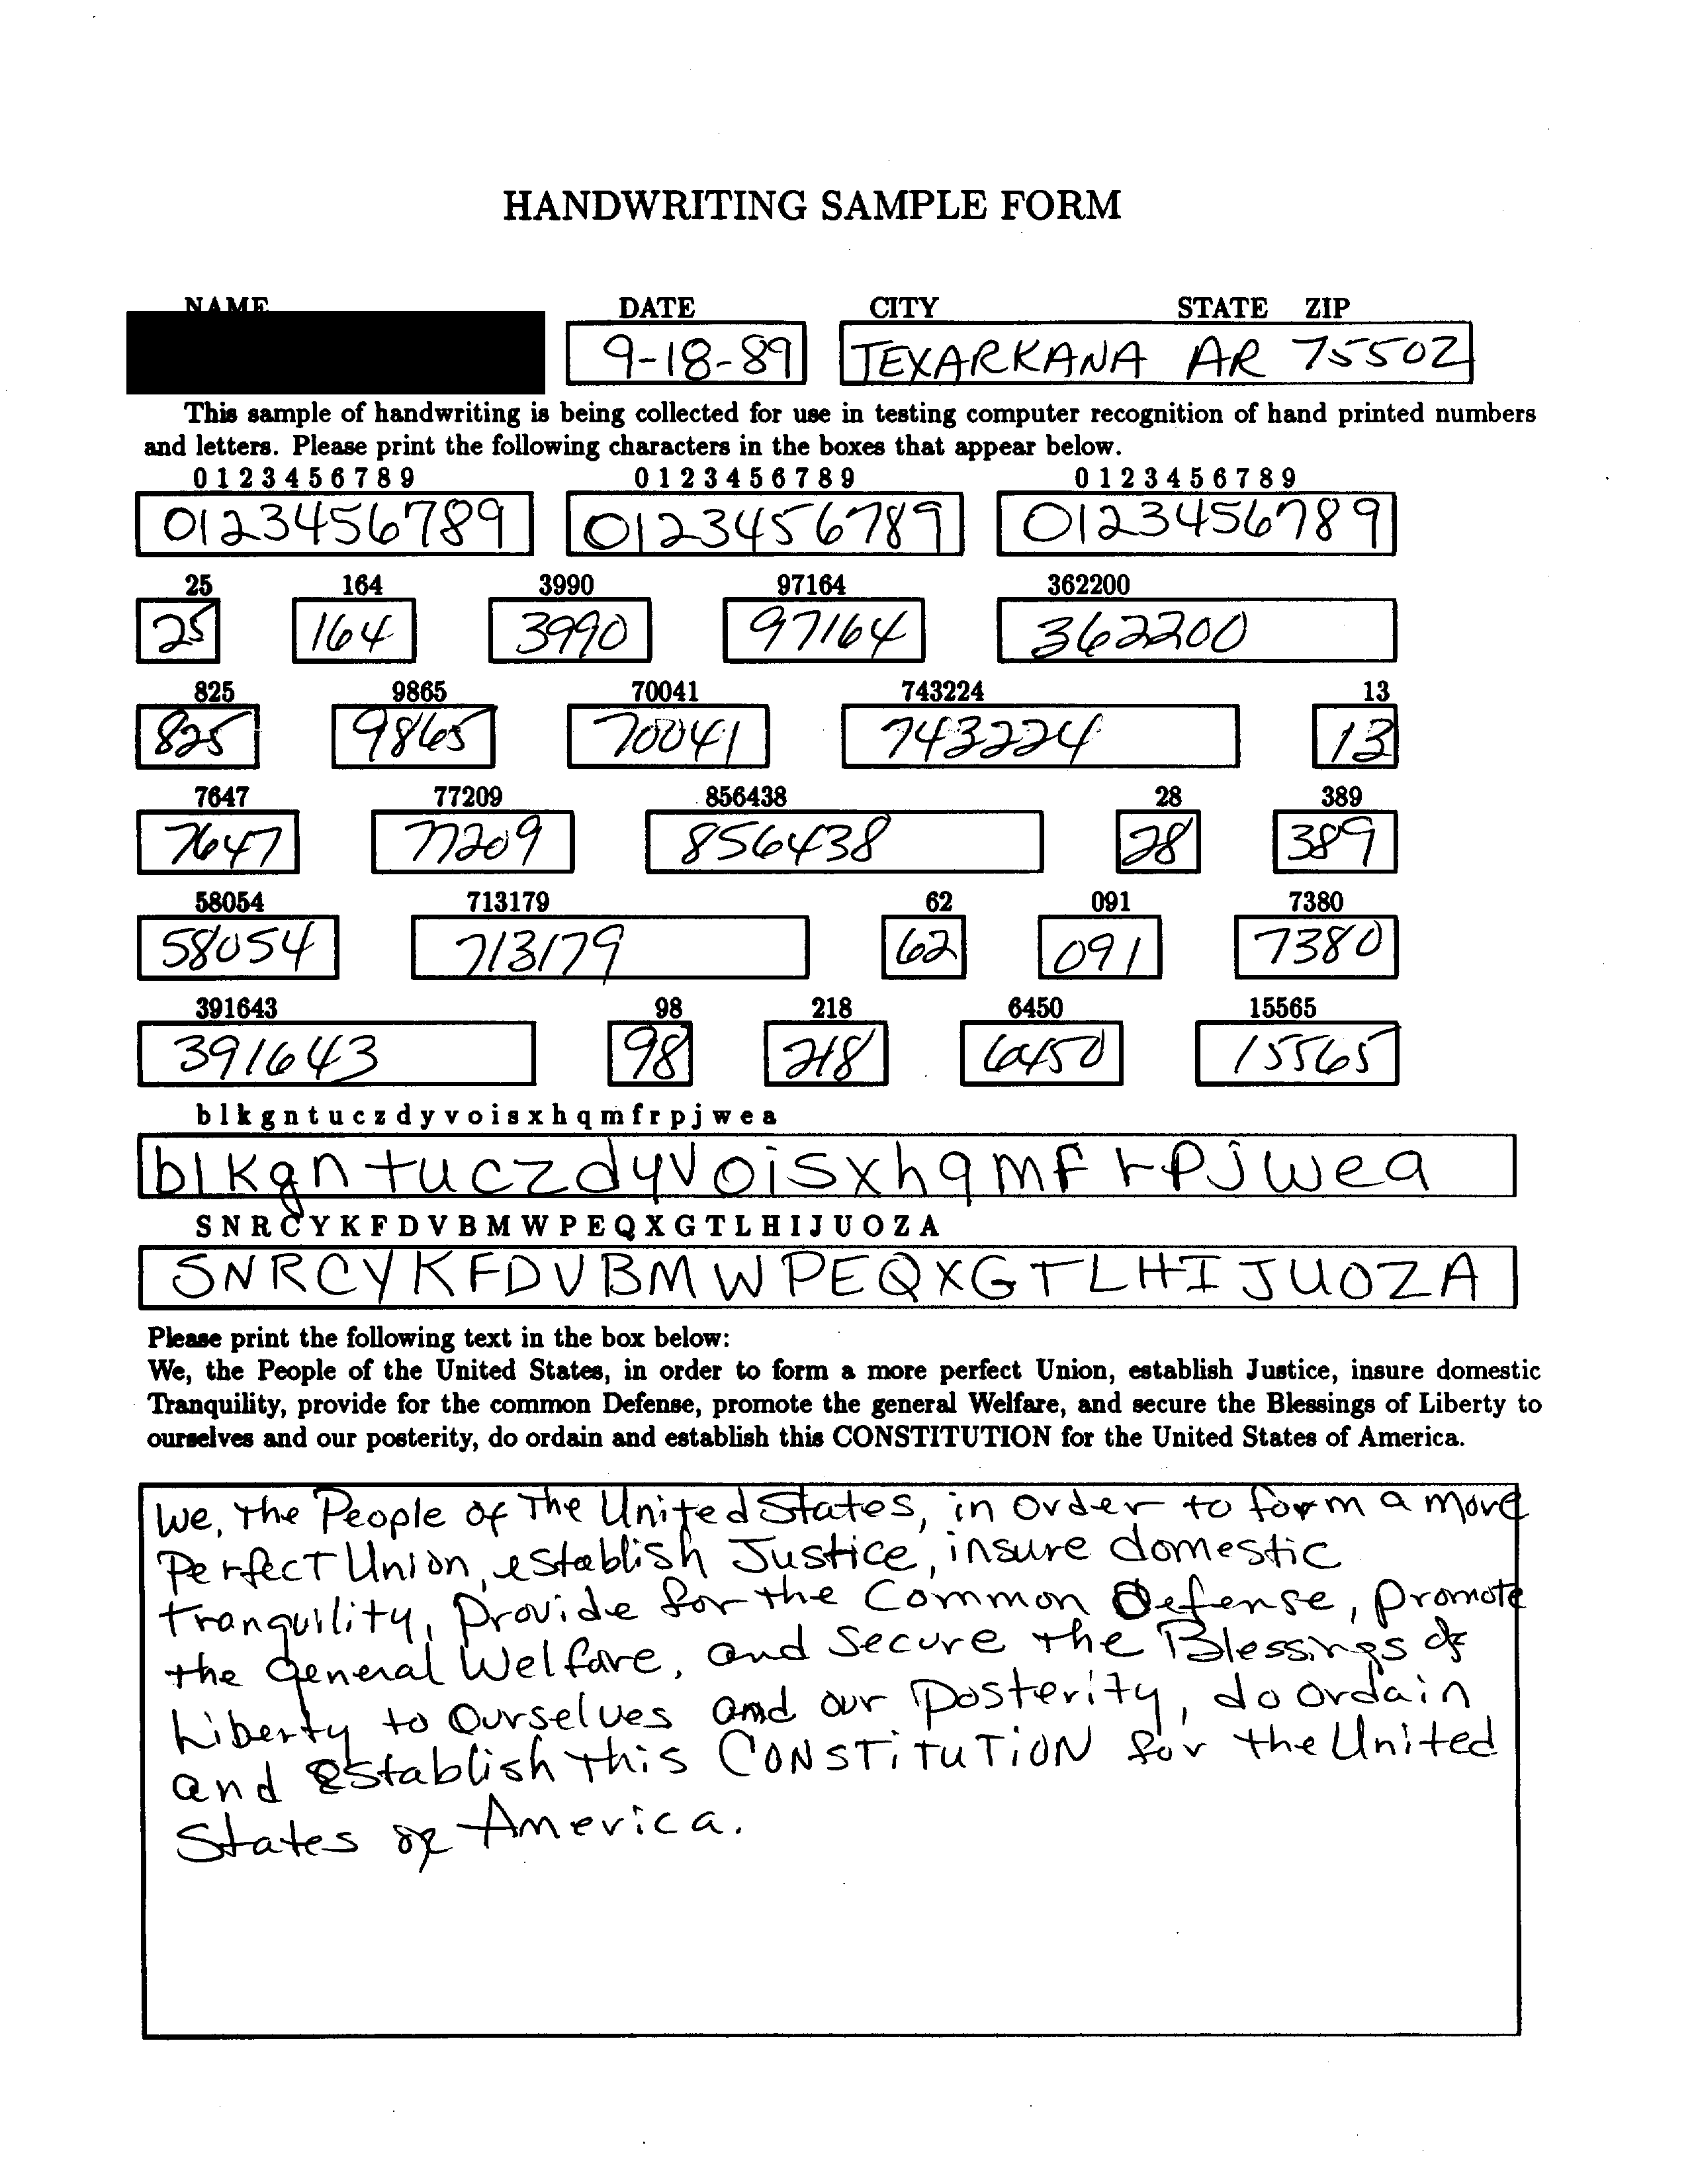 HANDWRITING SAMPLE FORM
NAME DATE CITY STATE ZIP
9-18-89 TEXARKANA AR 75502
This sample of handwriting is being collected for use in testing computer recognition of hand printed numbers
and letters. Please print the following characters in the boxes that appear below.
0 1 2 3 4 5 6 7 8 9 0 1 2 3 4 5 6 7 8 9 0 1 2 3 4 5 6 7 8 9
0123456789 0123456789 0123456789
25 164 3990 97164 362200
25 164 3990 97164 362200
825 9865 70041 743224 13
825 9865 70041 743224 13
7647 77209 856438 28 389
7647 77209 856438 28 389
58054 713179 62 091 7380
58054 713179 62 091 7380
391643 98 218 6450 15565
391643 98 218 6450 15565
b l k g n t u c z d y v o i s x h q m f r p j w e a
blkgntuczdyvoisxhqmfrpjwea
S N R C Y K F D V B M W P E Q X G T L H I J U O Z A
SNRCYKFDVBMWPEQXGTLHIJUOZA
Please print the following text in the box below:
We, the People of the United States, in order to form a more perfect Union, establish Justice, insure domestic
Tranquility, provide for the common Defense, promote the general Welfare, and secure the Blessings of Liberty to
ourselves and our posterity, do ordain and establish this CONSTITUTION for the United States of America.
We, the People of The United States, in order to form a more
Perfect Union, establish Justice, insure domestic
tranquility, Provide for the Common Defense, promote
the general Welfare, and Secure the Blessings of
Liberty to Ourselves and our Posterity, do ordain
and establish this CONSTiTUTiON for the United
States of America.